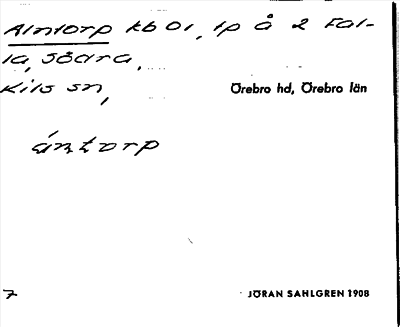 Alntorp kb 01, tp å 2 Fal-
la, Södra,
Kils sn,
Örebro hd, Örebro län
ántorp
7
JÖRAN SAHLGREN 1908